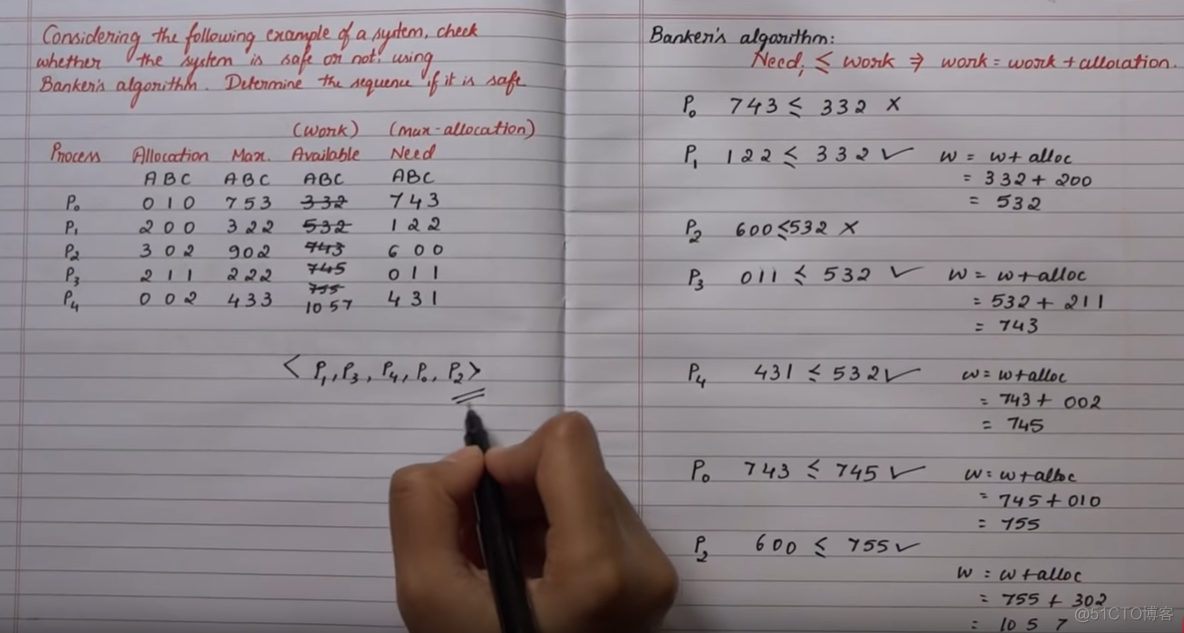 Considering the following example of a system, check
whether the system is safe or not, using
Banker's algorithm. Determine the sequence if it is safe
(work) (max-allocation)
Process Allocation Max. Available Need
A B C A B C A B C A B C
P0 0 1 0 7 5 3 3 3 2 7 4 3
P1 2 0 0 3 2 2 5 3 2 1 2 2
P2 3 0 2 9 0 2 7 4 3 6 0 0
P3 2 1 1 2 2 2 7 4 5 0 1 1
P4 0 0 2 4 3 3 7 5 5 4 3 1
10 5 7
< P1, P3, P4, P0, P2 >
Banker's algorithm:
Needi ≤ work ⇒ work = work + allocation.
P0 7 4 3 ≤ 3 3 2 ×
P1 1 2 2 ≤ 3 3 2 ✓ w = w + alloc
= 3 3 2 + 2 0 0
= 5 3 2
P2 6 0 0 ≤ 5 3 2 ×
P3 0 1 1 ≤ 5 3 2 ✓ w = w + alloc
= 5 3 2 + 2 1 1
= 7 4 3
P4 4 3 1 ≤ 5 3 2 ✓ w = w + alloc
= 7 4 3 + 0 0 2
= 7 4 5
P0 7 4 3 ≤ 7 4 5 ✓ w = w + alloc
= 7 4 5 + 0 1 0
= 7 5 5
P2 6 0 0 ≤ 7 5 5 ✓
w = w + alloc
= 7 5 5 + 3 0 2
= 10 5 7
@51CTO博客